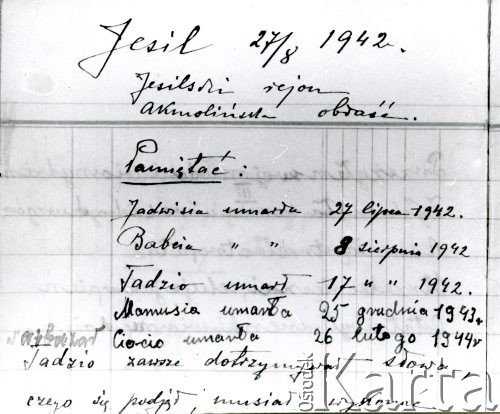 Jesil 27/8 1942r.
Jesilski rejon
Akmolińska obłaść.
Pamiętać:
Jadwisia umarła 27 lipca 1942.
Babcia " " 8 sierpnia 1942
Tadzio umarł 17 " " 1942.
Mamusia umarła 25 grudnia 1943r
Ciocio umarła 26 lutego 1944r
Tadzio zawsze dotrzymywał słowa,
czego się podjął, musiał wykonać
Ośrodek Karta